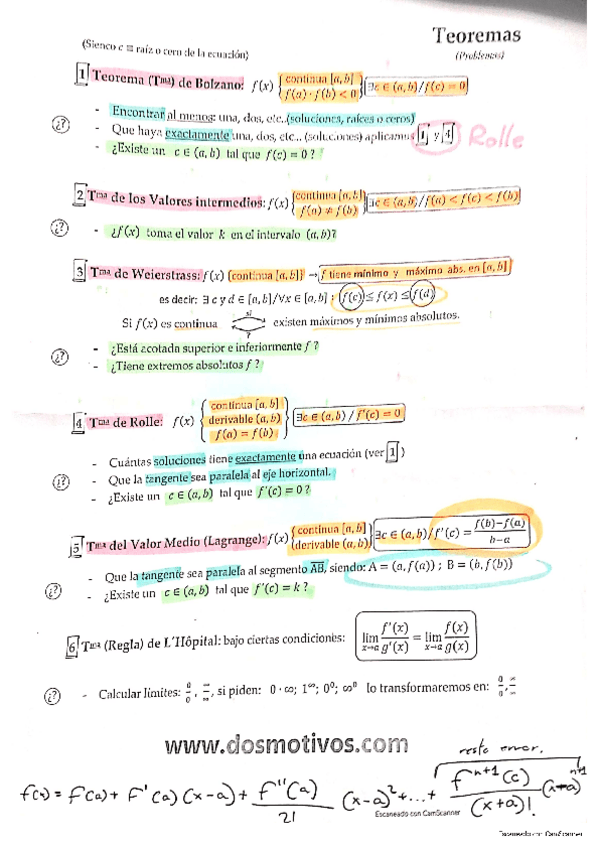 Teoremas
(Siendo c ≡ raíz o cero de la ecuación)
(Problemas)
1 Teorema (Tᵐᵃ) de Bolzano: f(x) { continua [a, b] f(a) · f(b) < 0 } ∃c ∈ (a, b)/f(c) = 0
¿? - Encontrar al menos: una, dos, etc..(soluciones, raíces o ceros)
- Que haya exactamente una, dos, etc... (soluciones) aplicamos 1 y 4 Rolle
- ¿Existe un c ∈ (a, b) tal que f(c) = 0 ?
2 Tᵐᵃ de los Valores intermedios: f(x) { continua [a, b] f(a) ≠ f(b) } ∃c ∈ (a, b)/f(a) < f(c) < f(b)
¿? - ¿f(x) toma el valor k en el intervalo (a, b)?
3 Tᵐᵃ de Weierstrass: f(x) {continua [a, b]} → f tiene mínimo y máximo abs. en [a, b]
es decir: ∃ c y d ∈ [a, b]/∀x ∈ [a, b] : f(c) ≤ f(x) ≤ f(d)
Si f(x) es continua si ? existen máximos y mínimos absolutos.
¿? - ¿Está acotada superior e inferiormente f ?
- ¿Tiene extremos absolutos f ?
4 Tᵐᵃ de Rolle: f(x) { continua [a, b] derivable (a, b) f(a) = f(b) } ∃c ∈ (a, b) / f'(c) = 0
- Cuántas soluciones tiene exactamente una ecuación (ver 1 )
¿? - Que la tangente sea paralela al eje horizontal.
- ¿Existe un c ∈ (a, b) tal que f'(c) = 0 ?
5 Tᵐᵃ del Valor Medio (Lagrange): f(x) { continua [a, b] derivable (a, b) } ∃c ∈ (a, b)/f'(c) = f(b)−f(a) / b−a
- Que la tangente sea paralela al segmento AB, siendo: A = (a, f(a)) ; B = (b, f(b))
¿? - ¿Existe un c ∈ (a, b) tal que f'(c) = k ?
6 Tᵐᵃ (Regla) de L'Hôpital: bajo ciertas condiciones: lim x→a f'(x)/g'(x) = lim x→a f(x)/g(x)
¿? - Calcular límites: 0/0, ∞/∞, si piden: 0 · ∞; 1^∞; 0⁰; ∞⁰ lo transformaremos en: 0/0, ∞/∞
www.dosmotivos.com
resto error.
f(x) = f(a) + f'(a) (x-a) + f''(a)/2! (x-a)² + ... + f^(n+1)(c)/(x+a)! (x-a)^(n+1)
Escaneado con CamScanner
Escaneado con CamScanner